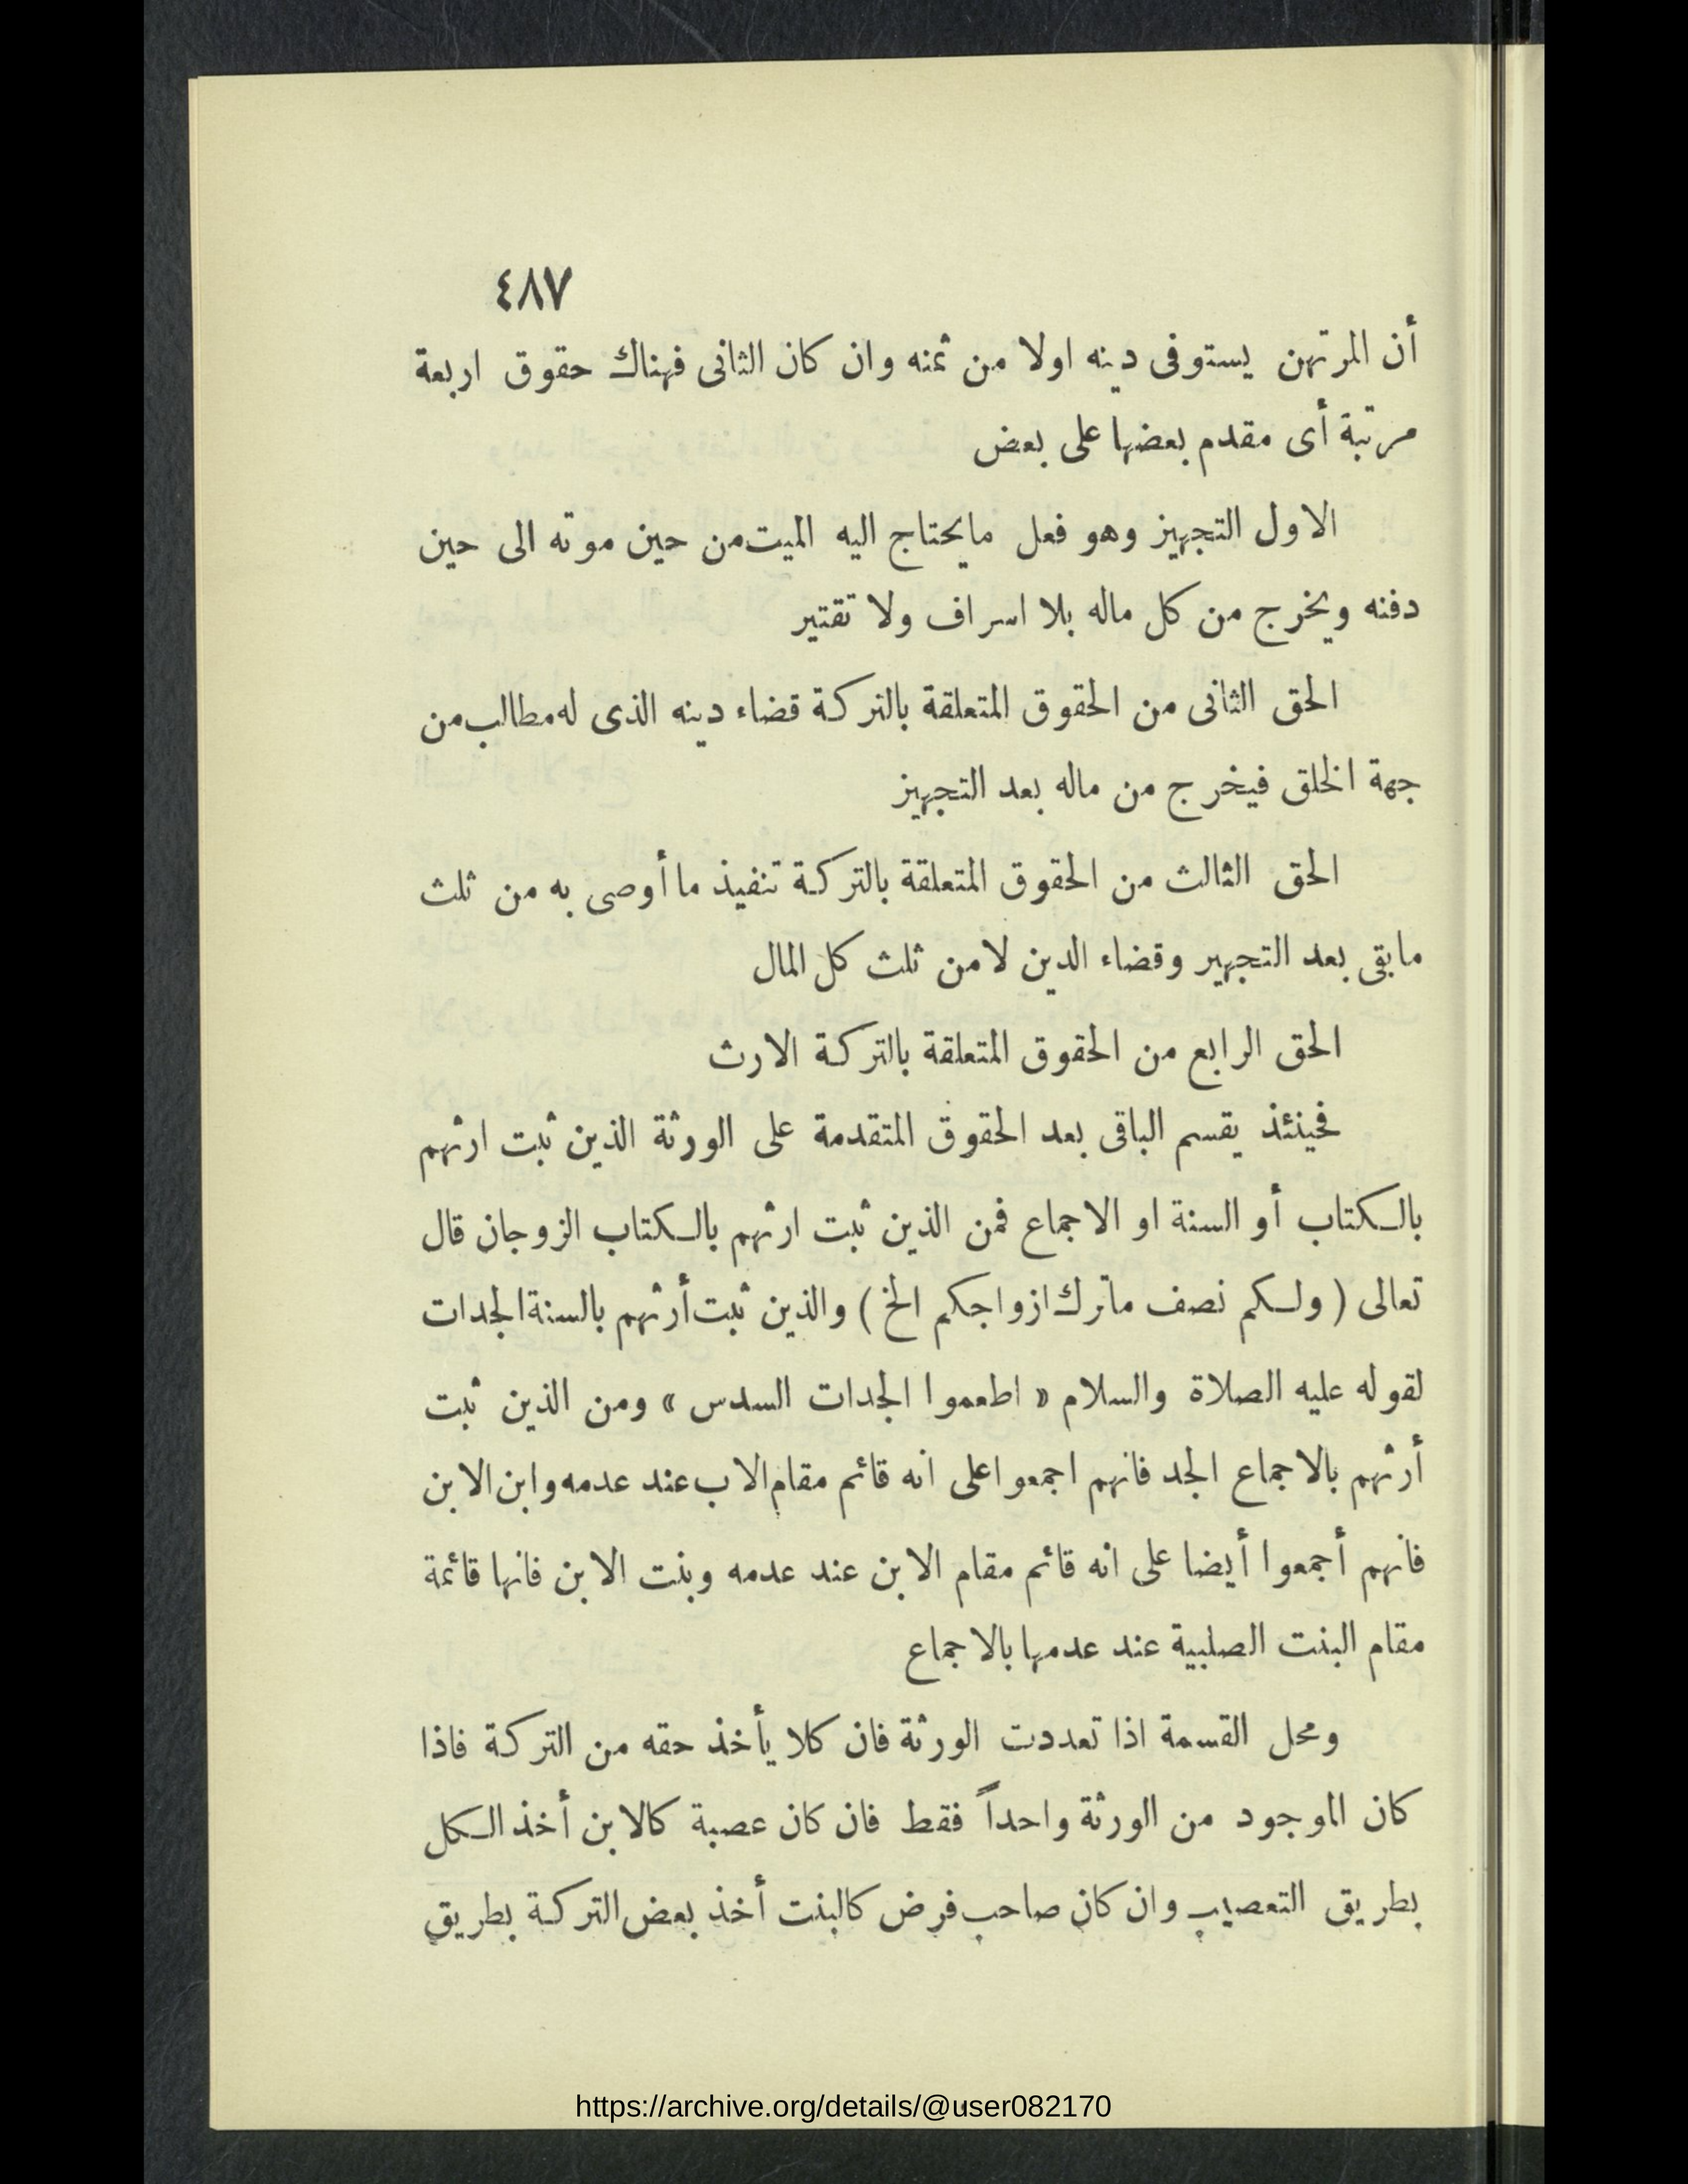 ٤٨٧
أن المرتهن يستوفى دينه اولا من ثمنه وان كان الثانى فهناك حقوق اربعة
مرتبة أى مقدم بعضها على بعض
الاول التجهيز وهو فعل مايحتاج اليه الميت من حين موته الى حين
دفنه ويخرج من كل ماله بلا اسراف ولا تقتير
الحق الثانى من الحقوق المتعلقة بالتركة قضاء دينه الذى له مطالب من
جهة الخلق فيخرج من ماله بعد التجهيز
الحق الثالث من الحقوق المتعلقة بالتركة تنفيذ ما أوصى به من ثلث
مابقى بعد التجهير وقضاء الدين لا من ثلث كل المال
الحق الرابع من الحقوق المتعلقة بالتركة الارث
فحينئذ يقسم الباقى بعد الحقوق المتقدمة على الورثة الذين ثبت ارثهم
بالكتاب أو السنة او الاجماع فمن الذين ثبت ارثهم بالكتاب الزوجان قال
تعالى ( ولكم نصف ماترك ازواجكم الخ ) والذين ثبت أرثهم بالسنة الجدات
لقوله عليه الصلاة والسلام « اطعموا الجدات السدس » ومن الذين ثبت
أرثهم بالاجماع الجد فانهم اجمعوا على انه قائم مقام الاب عند عدمه وابن الابن
فانهم أجمعوا أيضا على انه قائم مقام الابن عند عدمه وبنت الابن فانها قائمة
مقام البنت الصلبية عند عدمها بالاجماع
ومحل القسمة اذا تعددت الورثة فان كلا يأخذ حقه من التركة فاذا
كان الموجود من الورثة واحداً فقط فان كان عصبة كالابن أخذ الكل
بطريق التعصيب وان كان صاحب فرض كالبنت أخذ بعض التركة بطريق
https://archive.org/details/@user082170